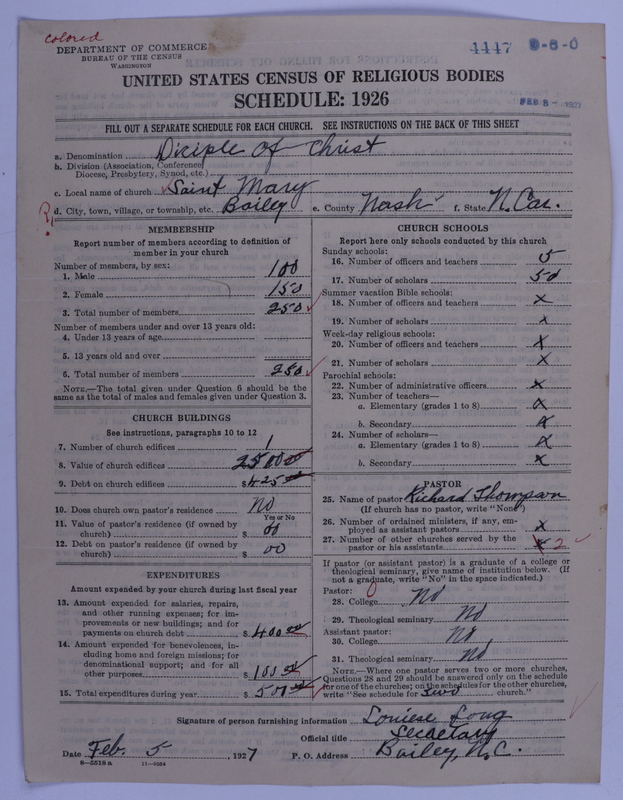 colored
DEPARTMENT OF COMMERCE
BUREAU OF THE CENSUS
WASHINGTON
1117 0-8-0
UNITED STATES CENSUS OF RELIGIOUS BODIES
SCHEDULE: 1926
FEB 8 - 1927
FILL OUT A SEPARATE SCHEDULE FOR EACH CHURCH. SEE INSTRUCTIONS ON THE BACK OF THIS SHEET
a. Denomination Diciple of Christ
b. Division (Association, Conference
Diocese, Presbytery, Synod, etc.)
c. Local name of church Saint Mary
d. City, town, village, or township, etc. Bailey e. County Nash f. State N. Car.
MEMBERSHIP
Report number of members according to definition of
member in your church
Number of members, by sex:
1. Male 100
2. Female 150
3. Total number of members 250
Number of members under and over 13 years old:
4. Under 13 years of age
5. 13 years old and over
6. Total number of members 250
NOTE.—The total given under Question 6 should be the
same as the total of males and females given under Question 3.
CHURCH BUILDINGS
See instructions, paragraphs 10 to 12
7. Number of church edifices 1
8. Value of church edifices 2500
9. Debt on church edifices $425
10. Does church own pastor's residence No
Yes or No
11. Value of pastor's residence (if owned by
church) $ 00
12. Debt on pastor's residence (if owned by
church) $ 00
EXPENDITURES
Amount expended by your church during last fiscal year
13. Amount expended for salaries, repairs,
and other running expenses; for im-
provements or new buildings; and for
payments on church debt $ 400 00
14. Amount expended for benevolences, in-
cluding home and foreign missions; for
denominational support; and for all
other purposes $ 100 00
15. Total expenditures during year $ 500 00
CHURCH SCHOOLS
Report here only schools conducted by this church
Sunday schools:
16. Number of officers and teachers 5
17. Number of scholars 50
Summer vacation Bible schools:
18. Number of officers and teachers x
19. Number of scholars x
Week-day religious schools:
20. Number of officers and teachers x
21. Number of scholars x
Parochial schools:
22. Number of administrative officers x
23. Number of teachers—
a. Elementary (grades 1 to 8) x
b. Secondary x
24. Number of scholars—
a. Elementary (grades 1 to 8) x
b. Secondary x
PASTOR
25. Name of pastor Richard Thompson
(If church has no pastor, write "None")
26. Number of ordained ministers, if any, em-
ployed as assistant pastors x
27. Number of other churches served by the
pastor or his assistants 2
If pastor (or assistant pastor) is a graduate of a college or
theological seminary, give name of institution below. (If
not a graduate, write "No" in the space indicated.)
Pastor:
28. College No
29. Theological seminary No
Assistant pastor:
30. College No
31. Theological seminary No
NOTE.—Where one pastor serves two or more churches,
Questions 28 and 29 should be answered only on the schedule
for one of the churches; on the schedules for the other churches,
write "See schedule for two church."
Signature of person furnishing information Louiese Long
Official title Secretary
Date Feb. 5, 1927 P. O. Address Bailey, N. C.
8—5518a 11—9084